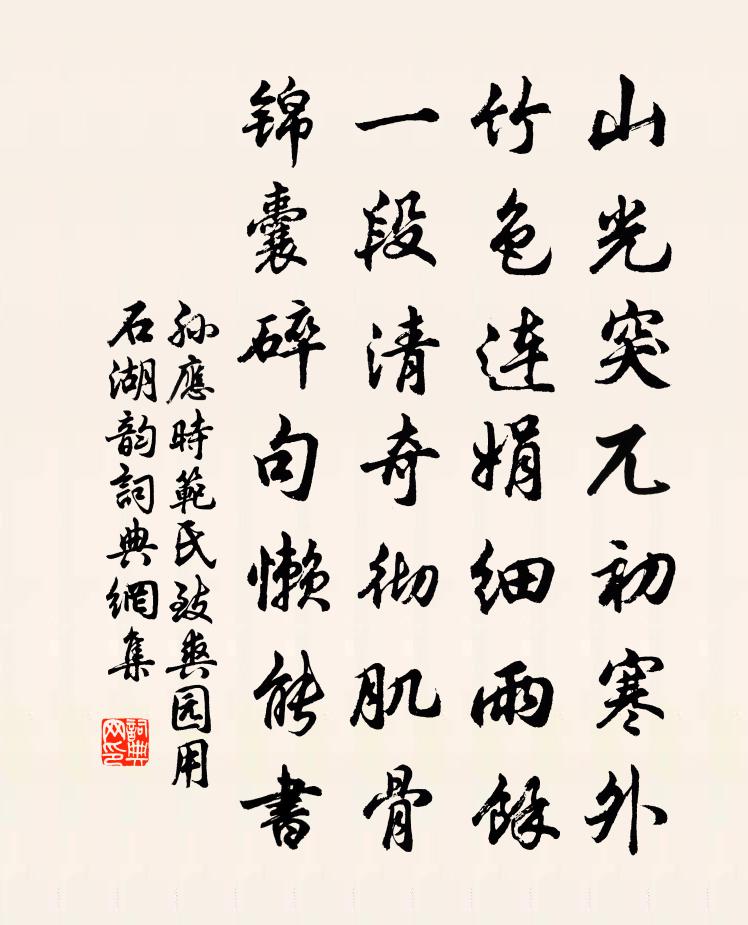 山光突兀初寒外
竹色连娟细雨馀
一段清奇彻肌骨
锦囊碎句懒能书
孙應時範氏致爽园用
石湖韵詞典網集
詞典网印